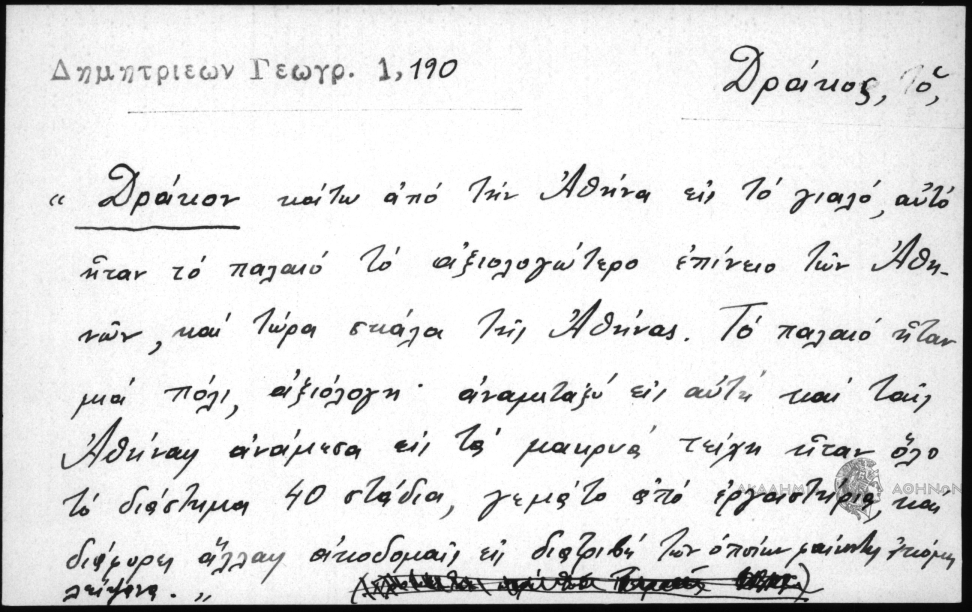 Δημητριεων Γεωγρ. 1, 190
Δράκος, τό,
“ Δράκον κάτω ἀπό τήν Ἀθήνα εἰς τό γιαλό, αὐτό
ἦταν τό παλαιό τό ἀξιολογώτερο ἐπίνειο τῶν Ἀθη-
νῶν, καί τώρα σκάλα τῆς Ἀθήνας. Τό παλαιό ἦταν
μιά πόλι, ἀξιόλογη· ἀναμεταξύ εἰς αὐτή καί ταῖς
Ἀθήναις ἀνάμεσα εἰς τά μακρυά τείχη ἦταν ὅλο
τό διάστημα 40 στάδια, γεμᾶτο ἀπό ἐργαστήρια, καί
διάφορες ἄλλαις οἰκοδομαῖς εἰς διατριβή τῶν ὁποίων φαίνονται ἀκόμη
λείψανα. „
ΑΚΑΔΗΜ ΑΘΗΝΩΝ